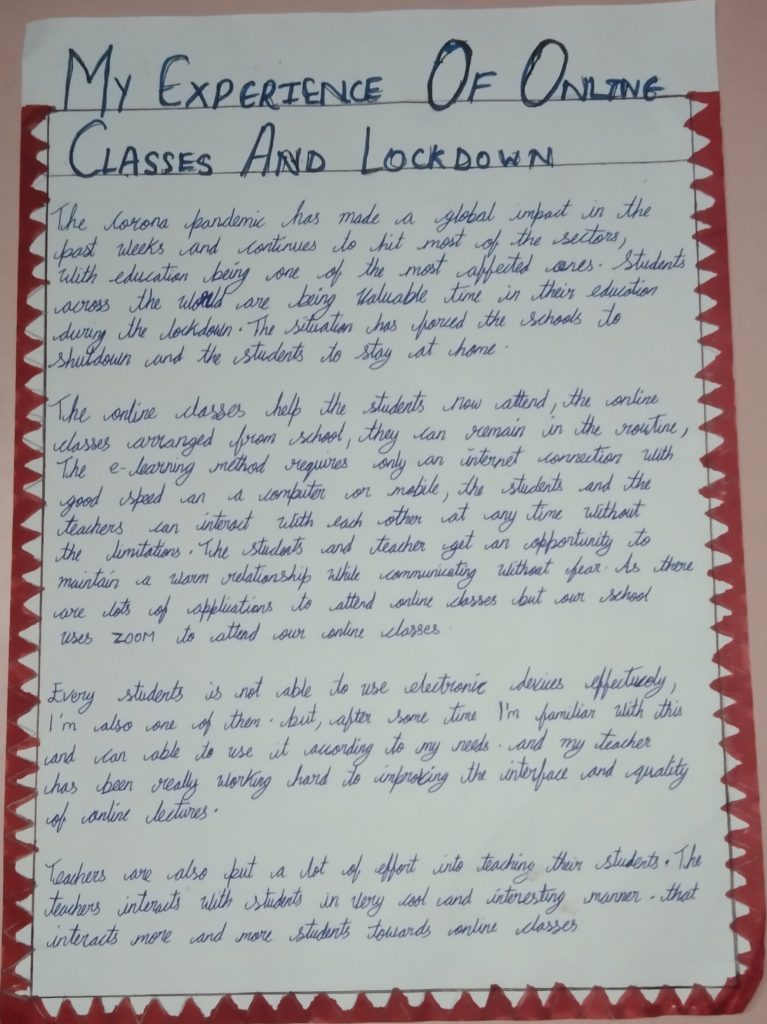 My Experience Of Online
Classes And Lockdown
The corona pandemic has made a global impact in the
past weeks and continues to hit most of the sectors,
With education being one of the most affected ones. Students
across the world are being Valuable time in their education
during the lockdown. The situation has forced the schools to
shutdown and the students to stay at home.
The online classes help the students now attend, the online
classes arranged from school, they can remain in the routine,
The e-learning method requires only an internet connection with
good speed an a computer or mobile, the students and the
teachers can interact with each other at any time without
the limitations. The students and teacher get an opportunity to
maintain a warm relationship while communicating without fear. As there
are lots of applications to attend online classes but our school
uses ZOOM to attend our online classes.
Every students is not able to use electronic devices effectively,
I'm also one of them. but, after some time I'm familiar with this
and can able to use it according to my needs. and my teacher
has been really working hard to improving the interface and quality
of online lectures.
Teachers are also put a lot of effort into teaching their students. The
teachers interacts with students in very cool and interesting manner. that
interacts more and more students towards online classes